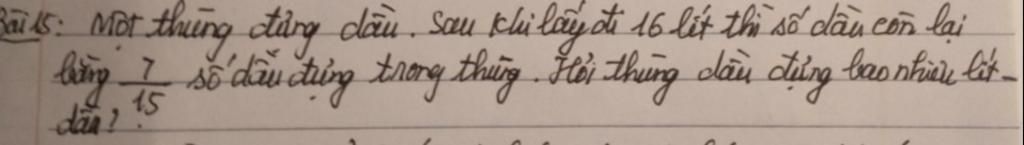 Bài 15: Một thùng đựng dầu. Sau khi lấy đi 16 lít thì số dầu còn lại
bằng 7/15 số dầu đựng trong thùng. Hỏi thùng dầu đựng bao nhiêu lít
dầu?